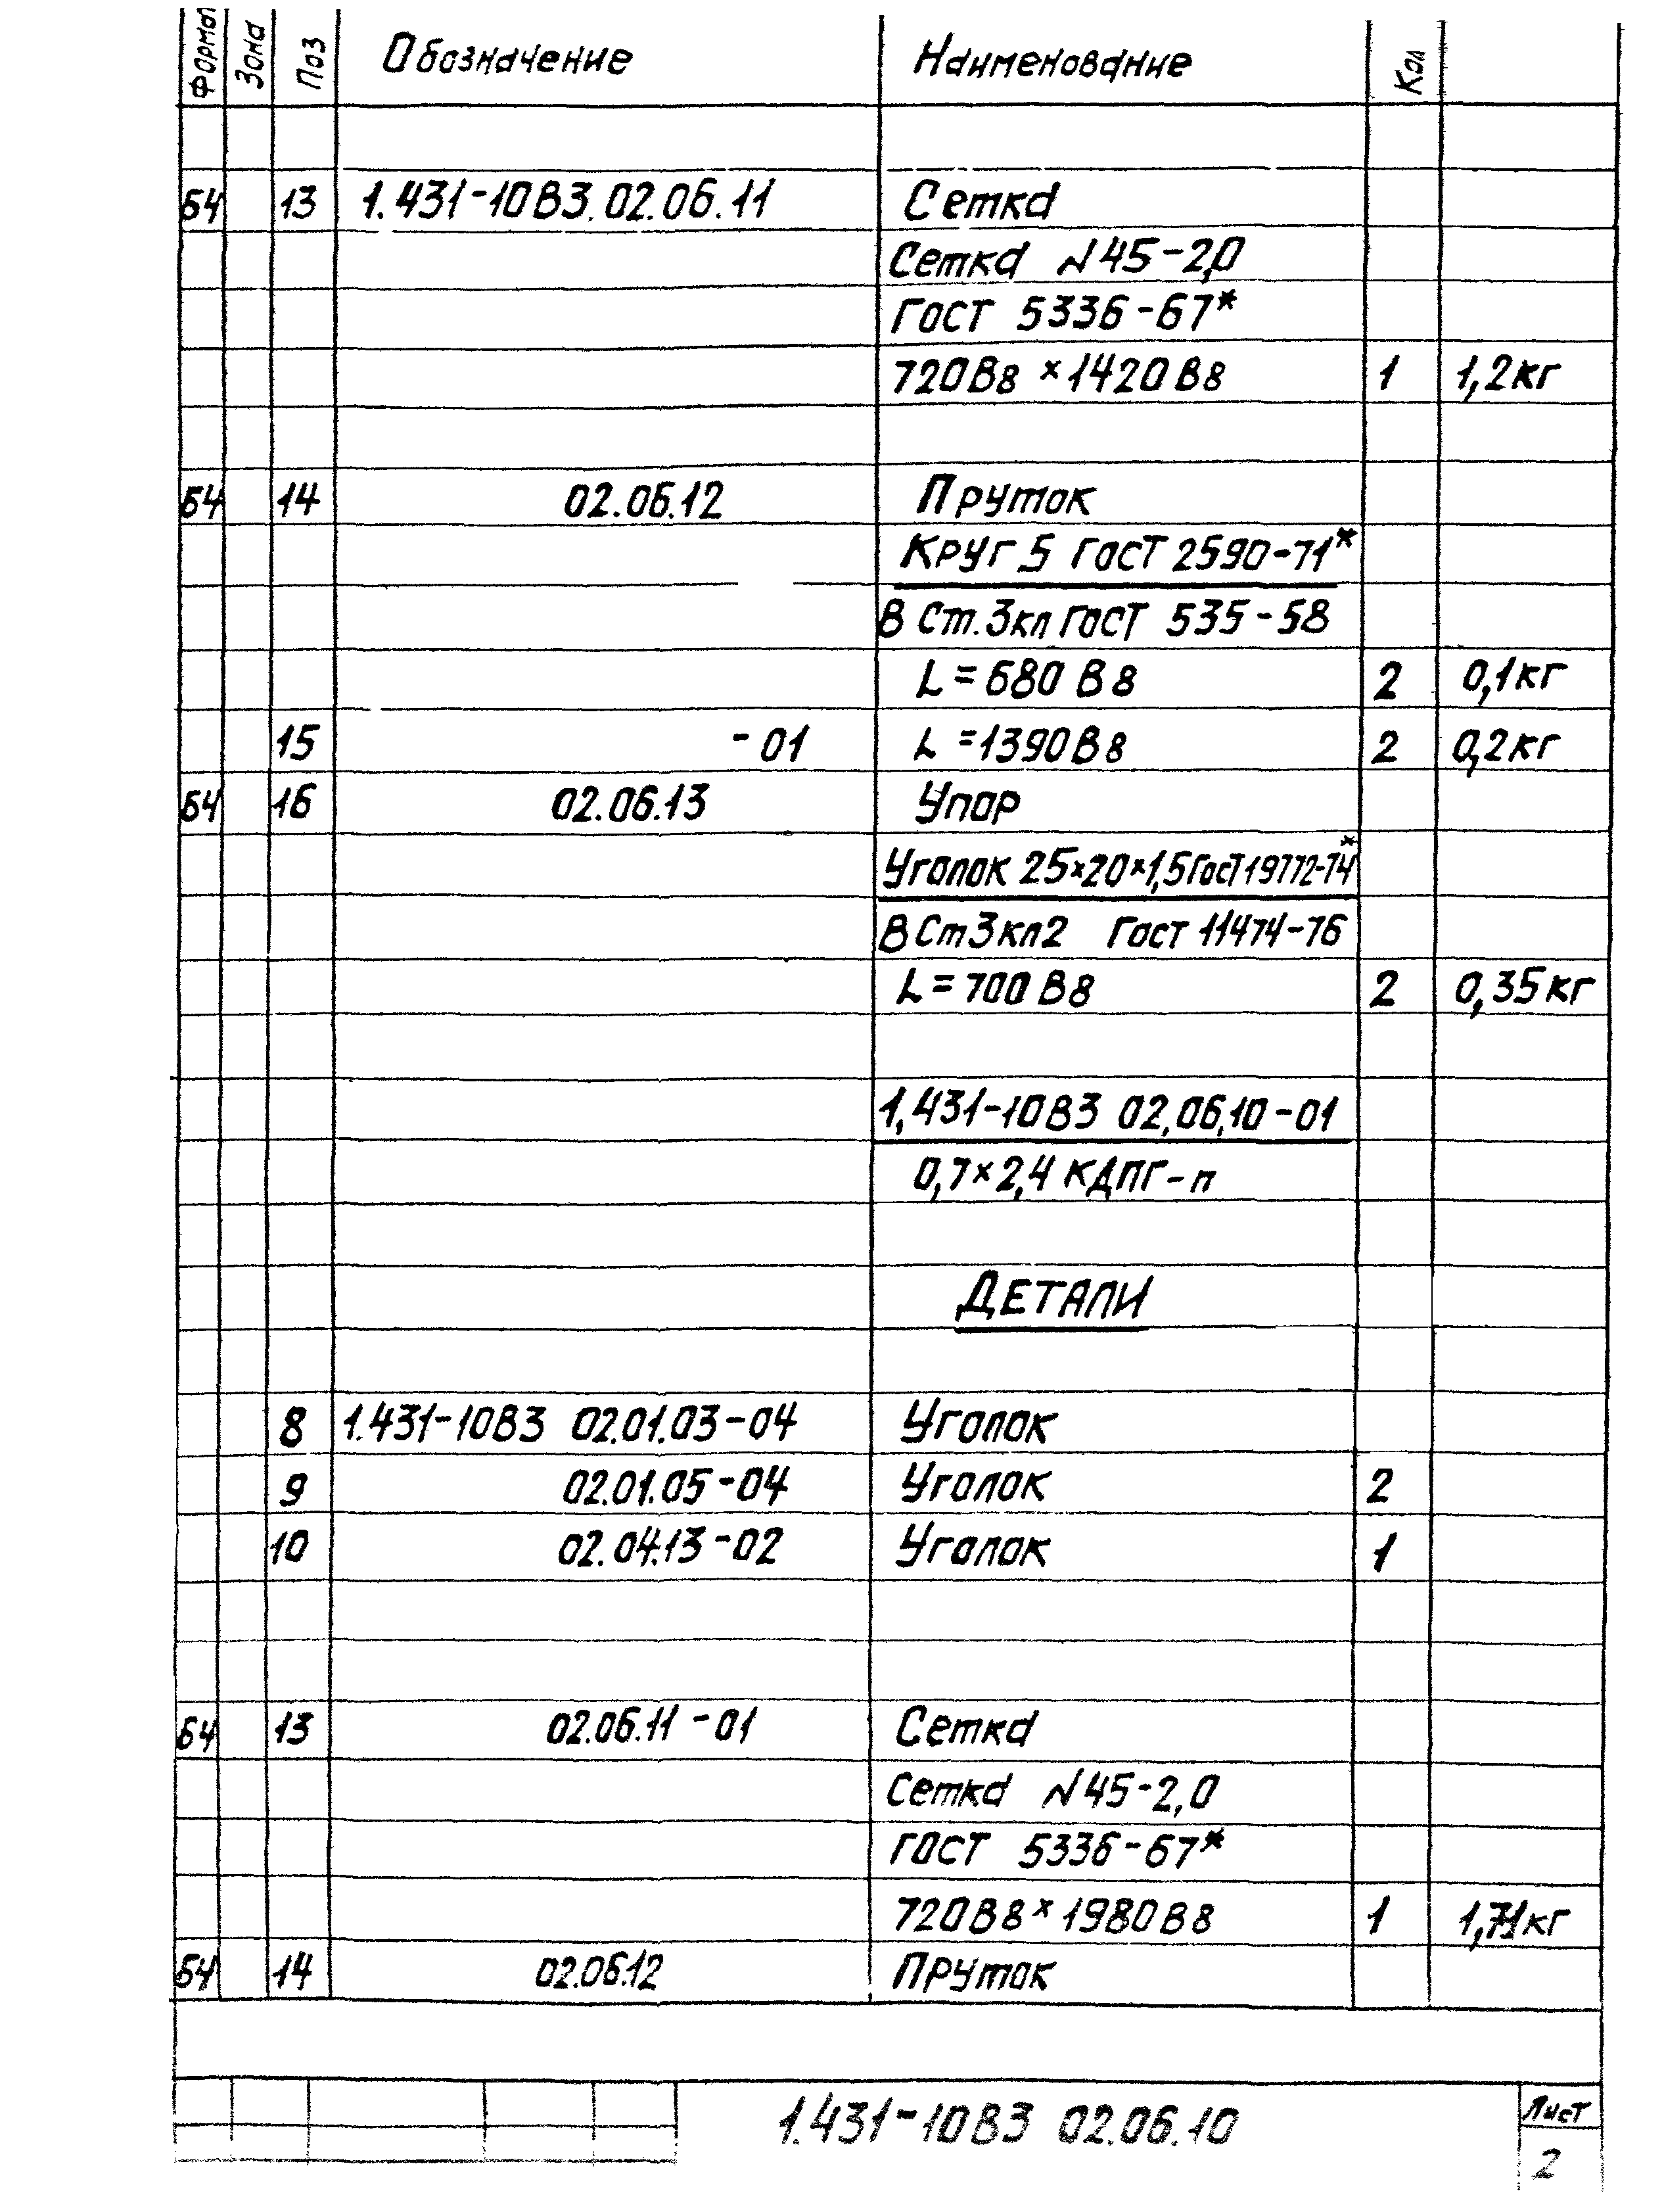 Формат Зона Поз Обозначение Наименование Кол
Б4 13 1.431-10В3.02.06.11 Сетка
Сетка N45-2,0
ГОСТ 5336-67*
720В8×1420В8 1 1,2кг
Б4 14 02.06.12 Пруток
Круг 5 ГОСТ 2590-71*
В Ст.3кп ГОСТ 535-58
L=680 В8 2 0,1кг
15 -01 L=1390В8 2 0,2кг
Б4 16 02.06.13 Упор
Уголок 25×20×1,5 Гост 19772-74*
В Ст3кп2 Гост 11474-76
L=700 В8 2 0,35кг
1,431-10В3 02,06,10-01
0,7×2,4 КДПГ-п
ДЕТАЛИ
8 1.431-10В3 02.01.03-04 Уголок
9 02.01.05-04 Уголок 2
10 02.04.13-02 Уголок 1
Б4 13 02.06.11-01 Сетка
Сетка N45-2,0
ГОСТ 5336-67*
720В8×1980В8 1 кг
Б4 14 02.06.12 Пруток
1.431-10В3 02.06.10
Лист
2